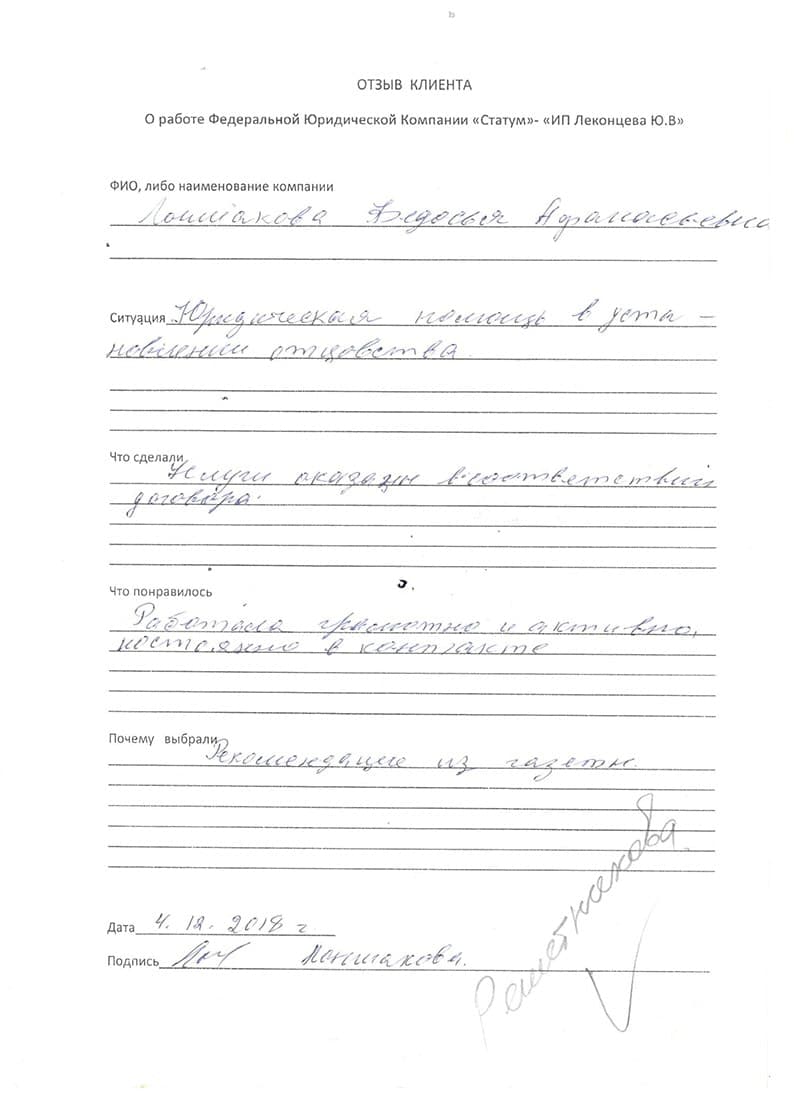 ОТЗЫВ КЛИЕНТА
О работе Федеральной Юридической Компании «Статум»- «ИП Леконцева Ю.В»
ФИО, либо наименование компании
Федосья Афанасьевна
Ситуация Юридическая помощь в уста-
новлении отцовства.
Что сделали
Услуги оказаны в соответствии
договора.
Что понравилось
Работала грамотно и активно,
постоянно в контакте
Почему выбрали
Рекомендации из газеты.
Дата 4.12.2018 г
Подпись
Решетникова